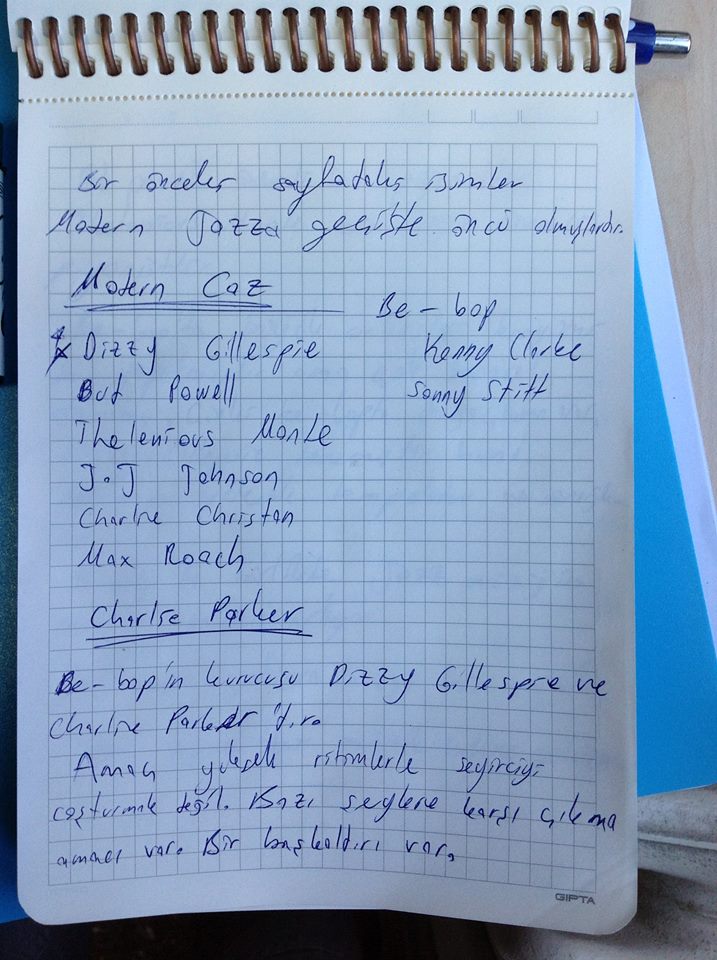 Bir önceki sayfadaki isimler
Modern Jazza geçişte öncü olmuşlardır.
Modern Caz
Be-bop
Dizzy Gillespie
Kenny Clarke
Bud Powell
Sonny Stitt
Thelenious Monk
J.J Johnson
Charlie Christan
Max Roach
Charlie Parker
Be-bop'in kurucusu Dizzy Gillespie ve
Charlie Parker'dır.
Amaç yüksek ritimlerle seyirciyi
coşturmak değil. Bazı şeylere karşı çıkma
amacı var. Bir başkaldırı var.
GIPTA